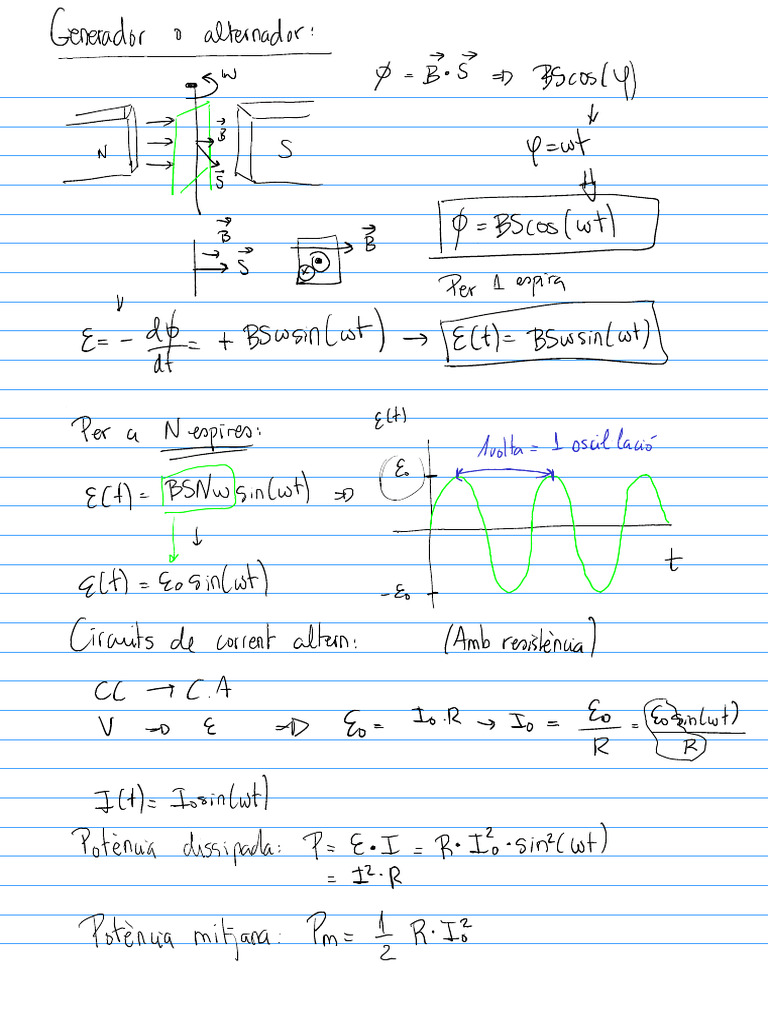 Generador o alternador:
ω
N
B⃗
S⃗
S
ϕ = B⃗ · S⃗ ⇒ BScos(φ)
↓
φ = ωt
⇓
ϕ = BScos(ωt)
B⃗
S⃗
B⃗
Per 1 espira
ε = - dϕ/dt = + BSωsin(ωt) → ε(t) = BSωsin(ωt)
Per a N espires:
ε(t) = BSNω sin(ωt) ⇒
↓ ↓
ε(t) = ε₀ sin(ωt)
ε(t)
1 volta = 1 oscil·lació
ε₀
t
-ε₀
Circuits de corrent altern: (Amb resistència)
CC → C.A
V → ε ⇒ ε₀ = I₀·R → I₀ = ε₀/R = ε₀sin(ωt)/R
I(t) = I₀sin(ωt)
Potència dissipada: P = ε·I = R·I₀²·sin²(ωt)
= I²·R
Potència mitjana: Pm = 1/2 R·I₀²